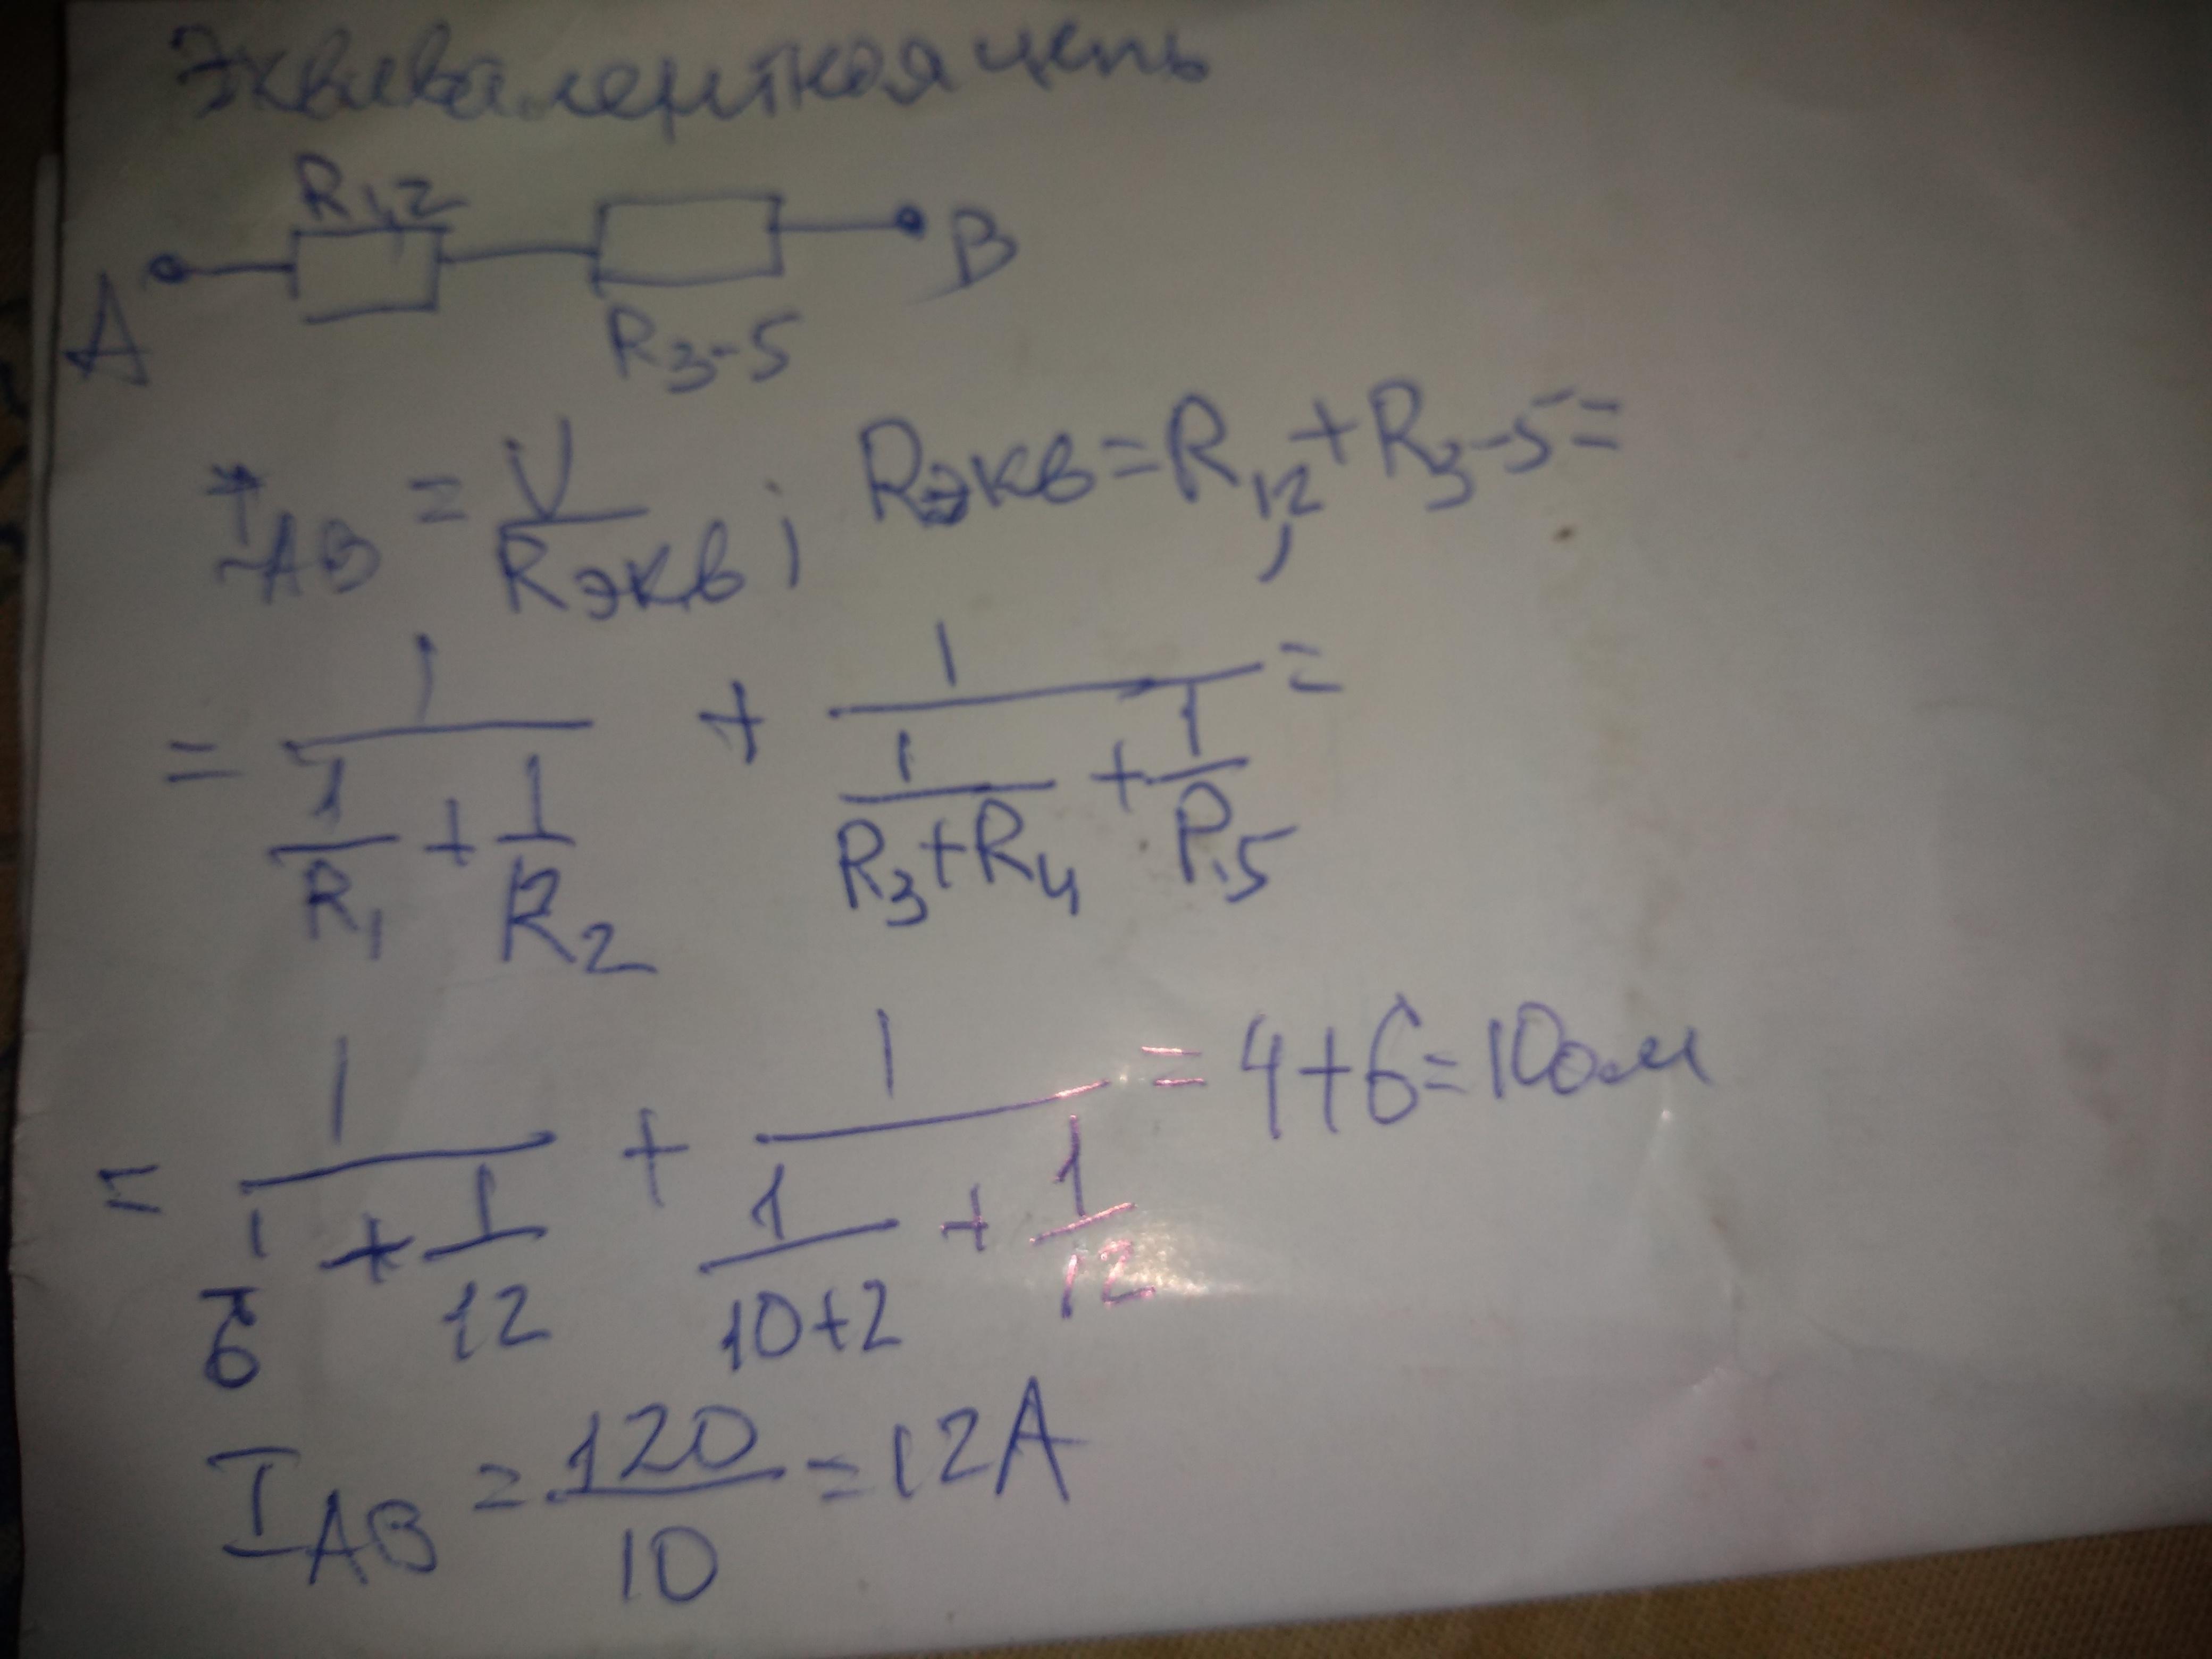 Эквивалентная цепь
R1,2
A B
R3-5
I_AB = U/Rэкв ; Rэкв = R1,2 + R3-5 =
= 1/(1/R1 + 1/R2) + 1/(1/(R3+R4) + 1/R5) =
= 1/(1/6 + 1/12) + 1/(1/(10+2) + 1/12) = 4+6=10ом
I_AB = 120/10 = 12A